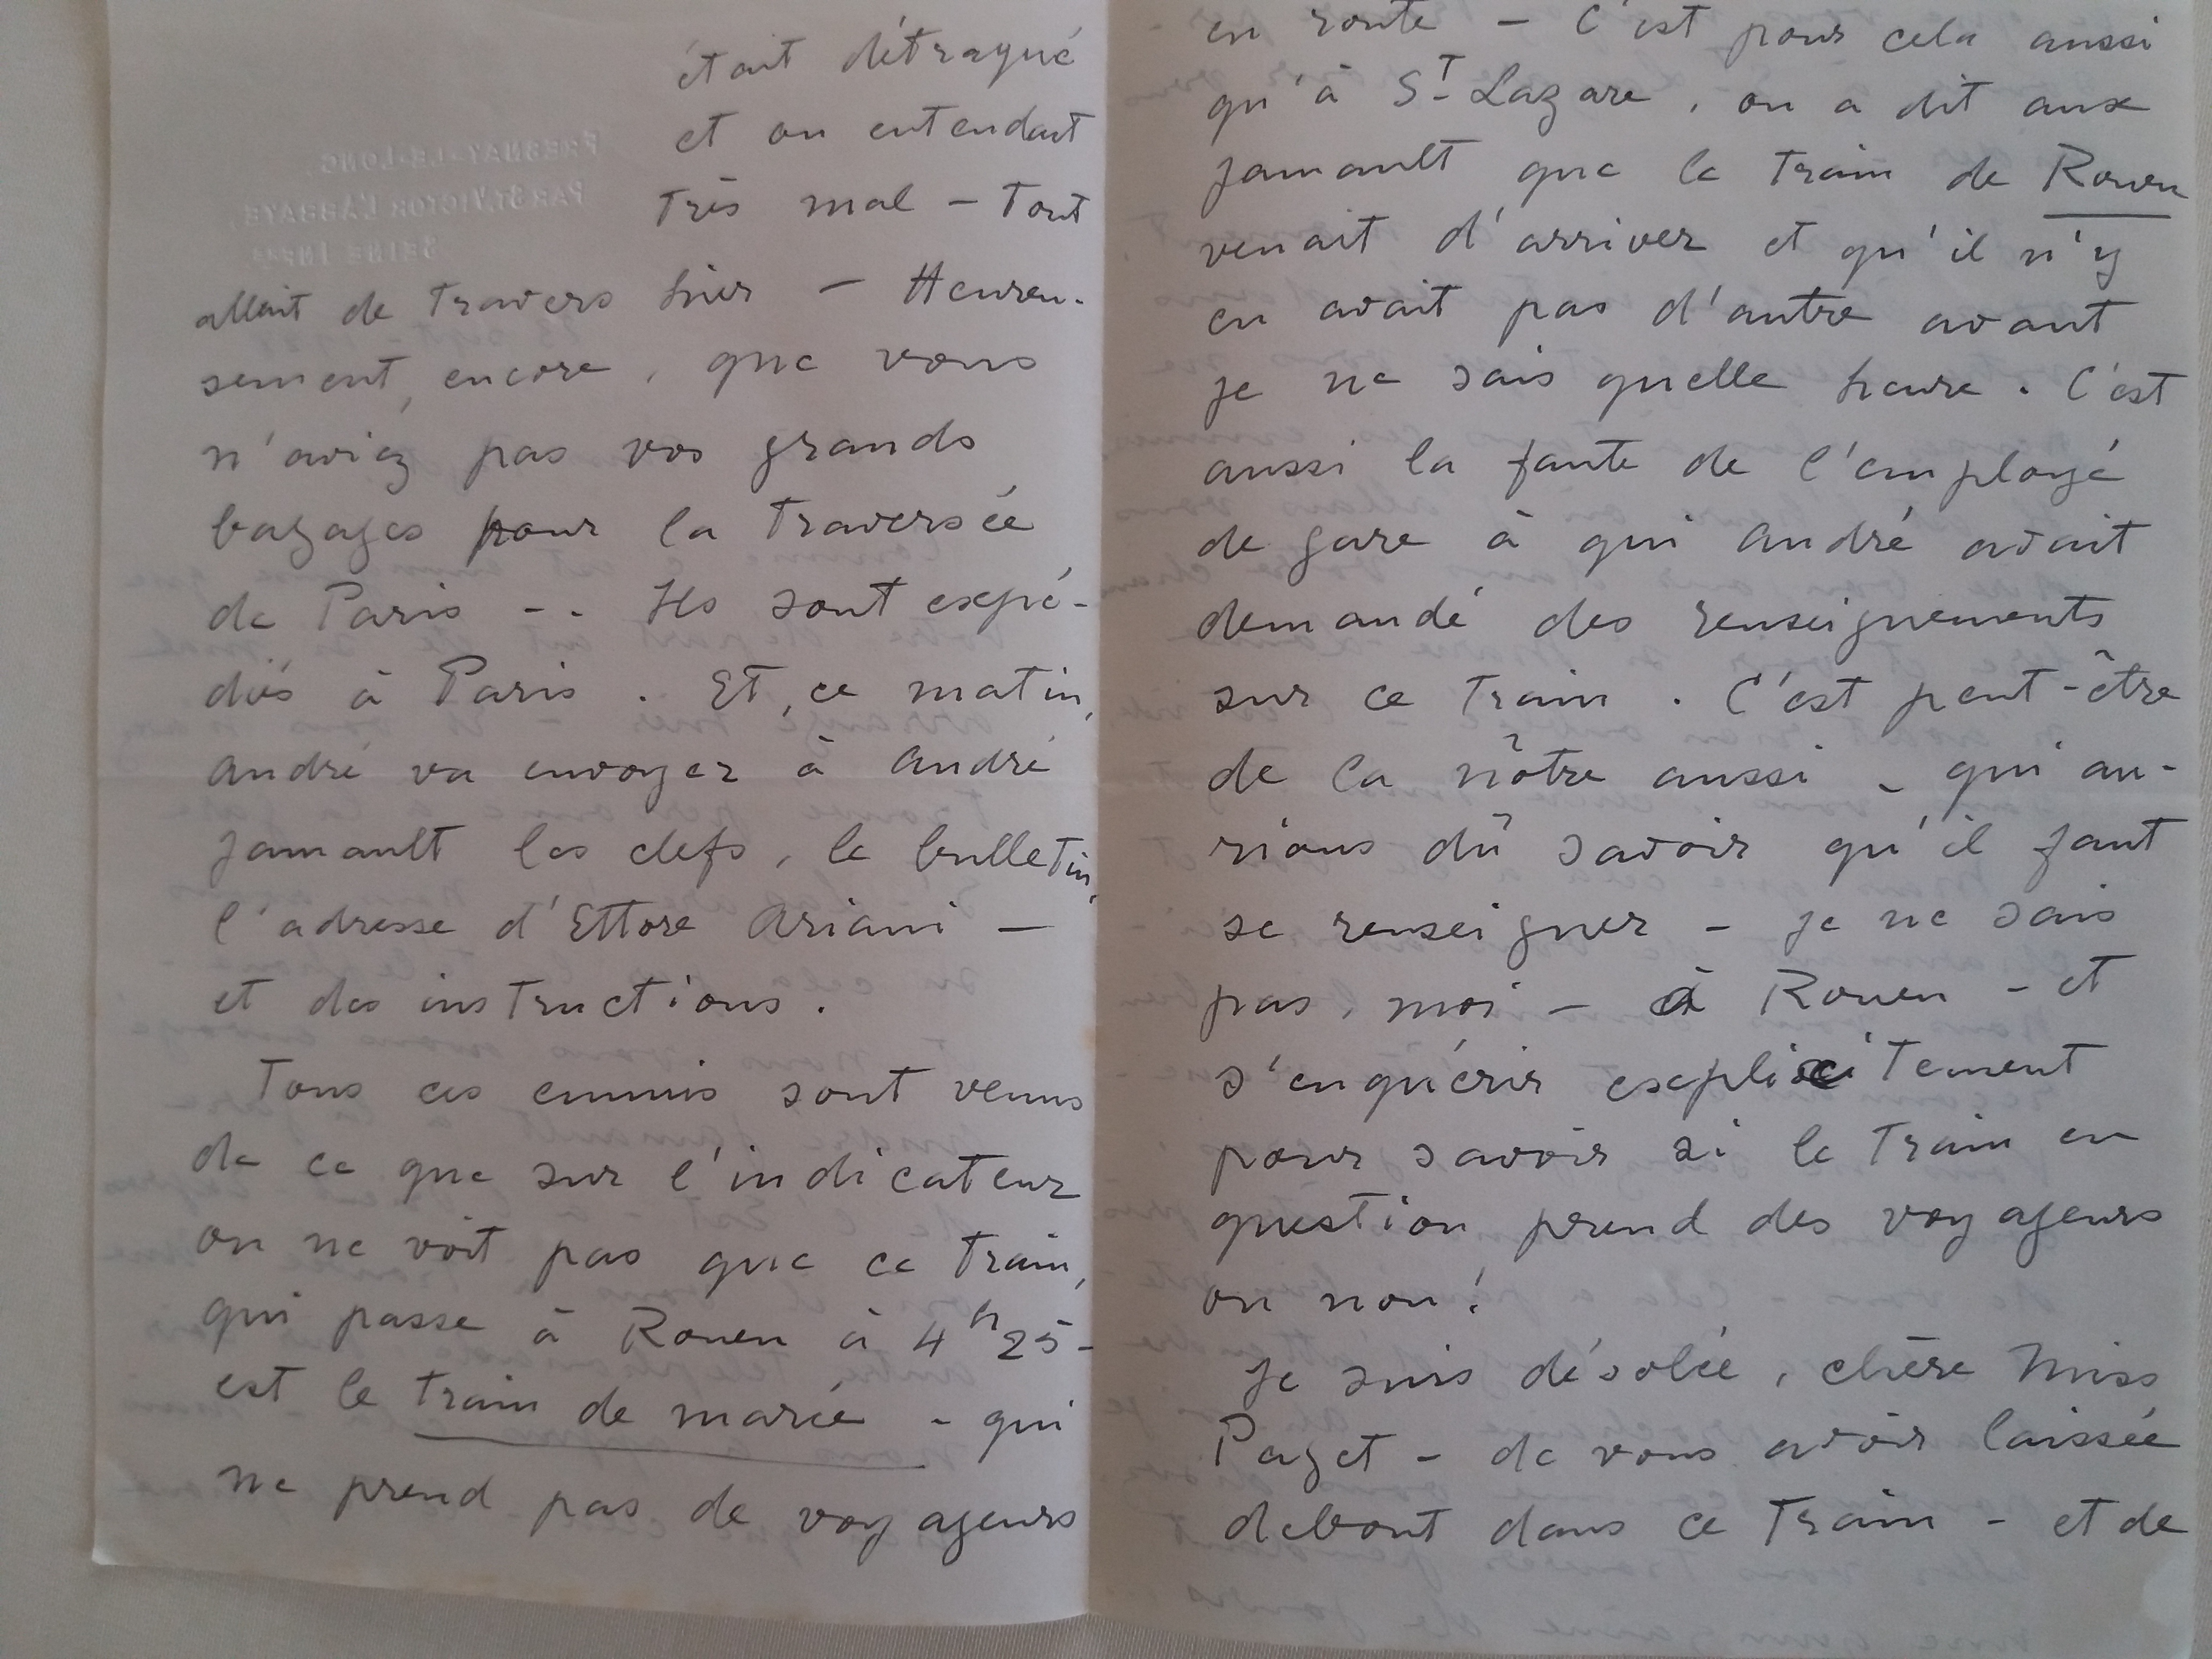 était détraqué
et on entendait
très mal – Tout
allait de Travers hier – Heureu-
sement, encore, que vous
n'aviez pas vos grands
bagages pour la Traversée
de Paris -- Ils sont expé-
diés à Paris. Et, ce matin,
André va envoyer à André
Jamault les clefs, le bulletin,
l'adresse d'Ettore Ariani –
et des instructions.
Tous ces ennuis sont venus
de ce que sur l'indicateur
on ne voit pas que ce train,
qui passe à Rouen à 4h25-
est le train de marée - qui
ne prend pas de voyageurs
en route – C'est pour cela aussi
qu'à ST Lazare, on a dit aux
Jamault que le train de Rouen
venait d'arriver et qu'il n'y
en avait pas d'autre avant
je ne sais quelle heure. C'est
aussi la faute de l'employé
de gare à qui André avait
demandé des renseignements
sur ce train. C'est peut-être
de la nôtre aussi - qui au-
rions dû savoir qu'il faut
se renseigner – je ne sais
pas, moi – à Rouen – et
s'enquérir explicitement
pour savoir si le train en
question prend des voyageurs
ou non!
Je suis désolée, chère Miss
Paget – de vous avoir laissée
debout dans ce train – et de
FRESNAY-LE-LONG
PAR ST. VICTOR L'ABBAYE,
SEINE INFRE